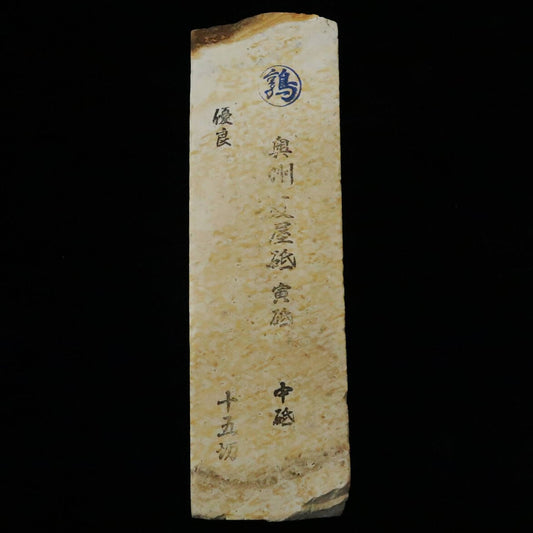 鶉
奥州 屋砥 寅砥 中砥
優良 十五切